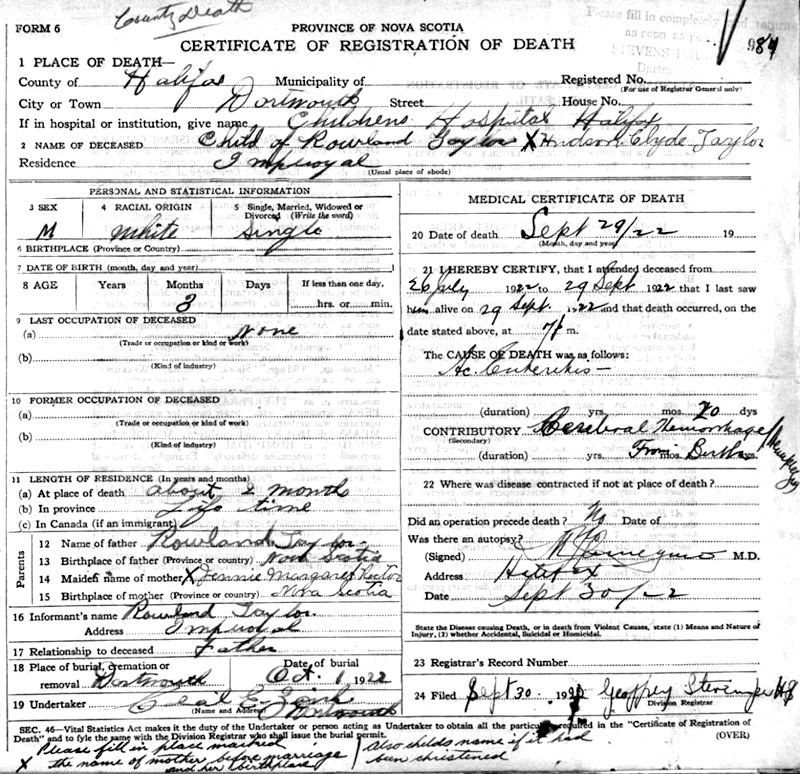 County Death
FORM 6
PROVINCE OF NOVA SCOTIA
Please fill in completely and return
as soon as
984
CERTIFICATE OF REGISTRATION OF DEATH
1 PLACE OF DEATH—
County of Halifax Municipality of Registered No.
(For use of Registrar General only)
City or Town Dartmouth Street: House No.
If in hospital or institution, give name Childrens Hospital Halifax
2 NAME OF DECEASED Child of Rowland Taylor X Hudson Clyde Taylor
Residence Imperoyal
(Usual place of abode)
PERSONAL AND STATISTICAL INFORMATION
3 SEX 4 RACIAL ORIGIN 5 Single, Married, Widowed or Divorced (Write the word)
M White Single
6 BIRTHPLACE (Province or Country)
7 DATE OF BIRTH (month, day and year)
8 AGE Years Months Days If less than one day,
3 hrs. or min.
9 LAST OCCUPATION OF DECEASED
(a) None
(Trade or occupation or kind of work)
(b)
(Kind of industry)
10 FORMER OCCUPATION OF DECEASED
(a)
(Trade or occupation or kind of work)
(b)
(Kind of industry)
11 LENGTH OF RESIDENCE (In years and months)
(a) At place of death about 2 months
(b) In province Life time
(c) In Canada (if an immigrant)
Parents
12 Name of father Rowland Taylor
13 Birthplace of father (Province or country) Nova Scotia
14 Maiden name of mother X Jennie Margaret
15 Birthplace of mother (Province or country) Nova Scotia
16 Informant's name Rowland Taylor
Address Imperoyal
17 Relationship to deceased Father
18 Place of burial, cremation or removal Dartmouth Date of burial Oct. 1 1922
19 Undertaker Dartmouth
(Name and Address)
MEDICAL CERTIFICATE OF DEATH
20 Date of death Sept 29/22 19
(Month, day and year)
21 I HEREBY CERTIFY, that I attended deceased from
26 July 1922 to 29 Sept 1922 that I last saw
him alive on 29 Sept. 1922 and that death occurred, on the
date stated above, at 7 m.
The CAUSE OF DEATH was as follows:
Ac. Enteritis —
(duration) yrs. mos. 20 dys
CONTRIBUTORY Cerebral Hemorrhage
(Secondary)
(duration) yrs. From mos. Birth dys.
22 Where was disease contracted if not at place of death?
Did an operation precede death? No Date of
Was there an autopsy? No
(Signed) M.D.
Address Halifax
Date Sept 30/22
State the Disease causing Death, or in death from Violent Causes, state (1) Means and Nature of
Injury, (2) whether Accidental, Suicidal or Homicidal.
23 Registrar's Record Number
24 Filed Sept 30. 1922 Geoffrey Stevens
Division Registrar
SEC. 46—Vital Statistics Act makes it the duty of the Undertaker or person acting as Undertaker to obtain all the particulars required in the "Certificate of Registration of
Death" and to fyle the same with the Division Registrar who shall issue the burial permit. (OVER)
X Please fill in place marked
the name of mother before marriage
and her birthplace
also childs name if it had
been christened